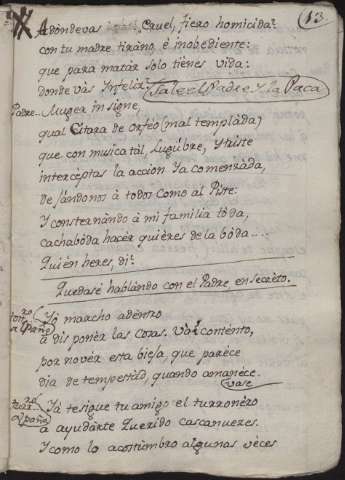 13
Adonde vas Cruel, fiero homicida?
con tu madre tirano, è inobediente:
que para matar solo tienes vida:
donde vàs Ynfeliz? Sale el Padre y la Paca
Padre.. Muger insigne,
qual Citara de Orfèo (mal templada)
que con musica tàl, Lugùbre, y triste
interceptas la acciòn ya comenzada,
dejàndonos à todos como al Piste:
Y consternàndo à mi familia tòda,
cachaboda hacèr quières de la bòda....
Quièn heres, di?
Quedase hablàndo con el Padre en secrèto.
Yo marcho adèntro
à disponèr las cosas. Voi contènto,
por no vèr esta bieja, que parèce
dia de tempestàd, quando amanèce.
vase
Yà te sigue tu amigo el turronèro
à ayudarte Querido cascanueces.
Y como lo acostùmbro algunas vèces